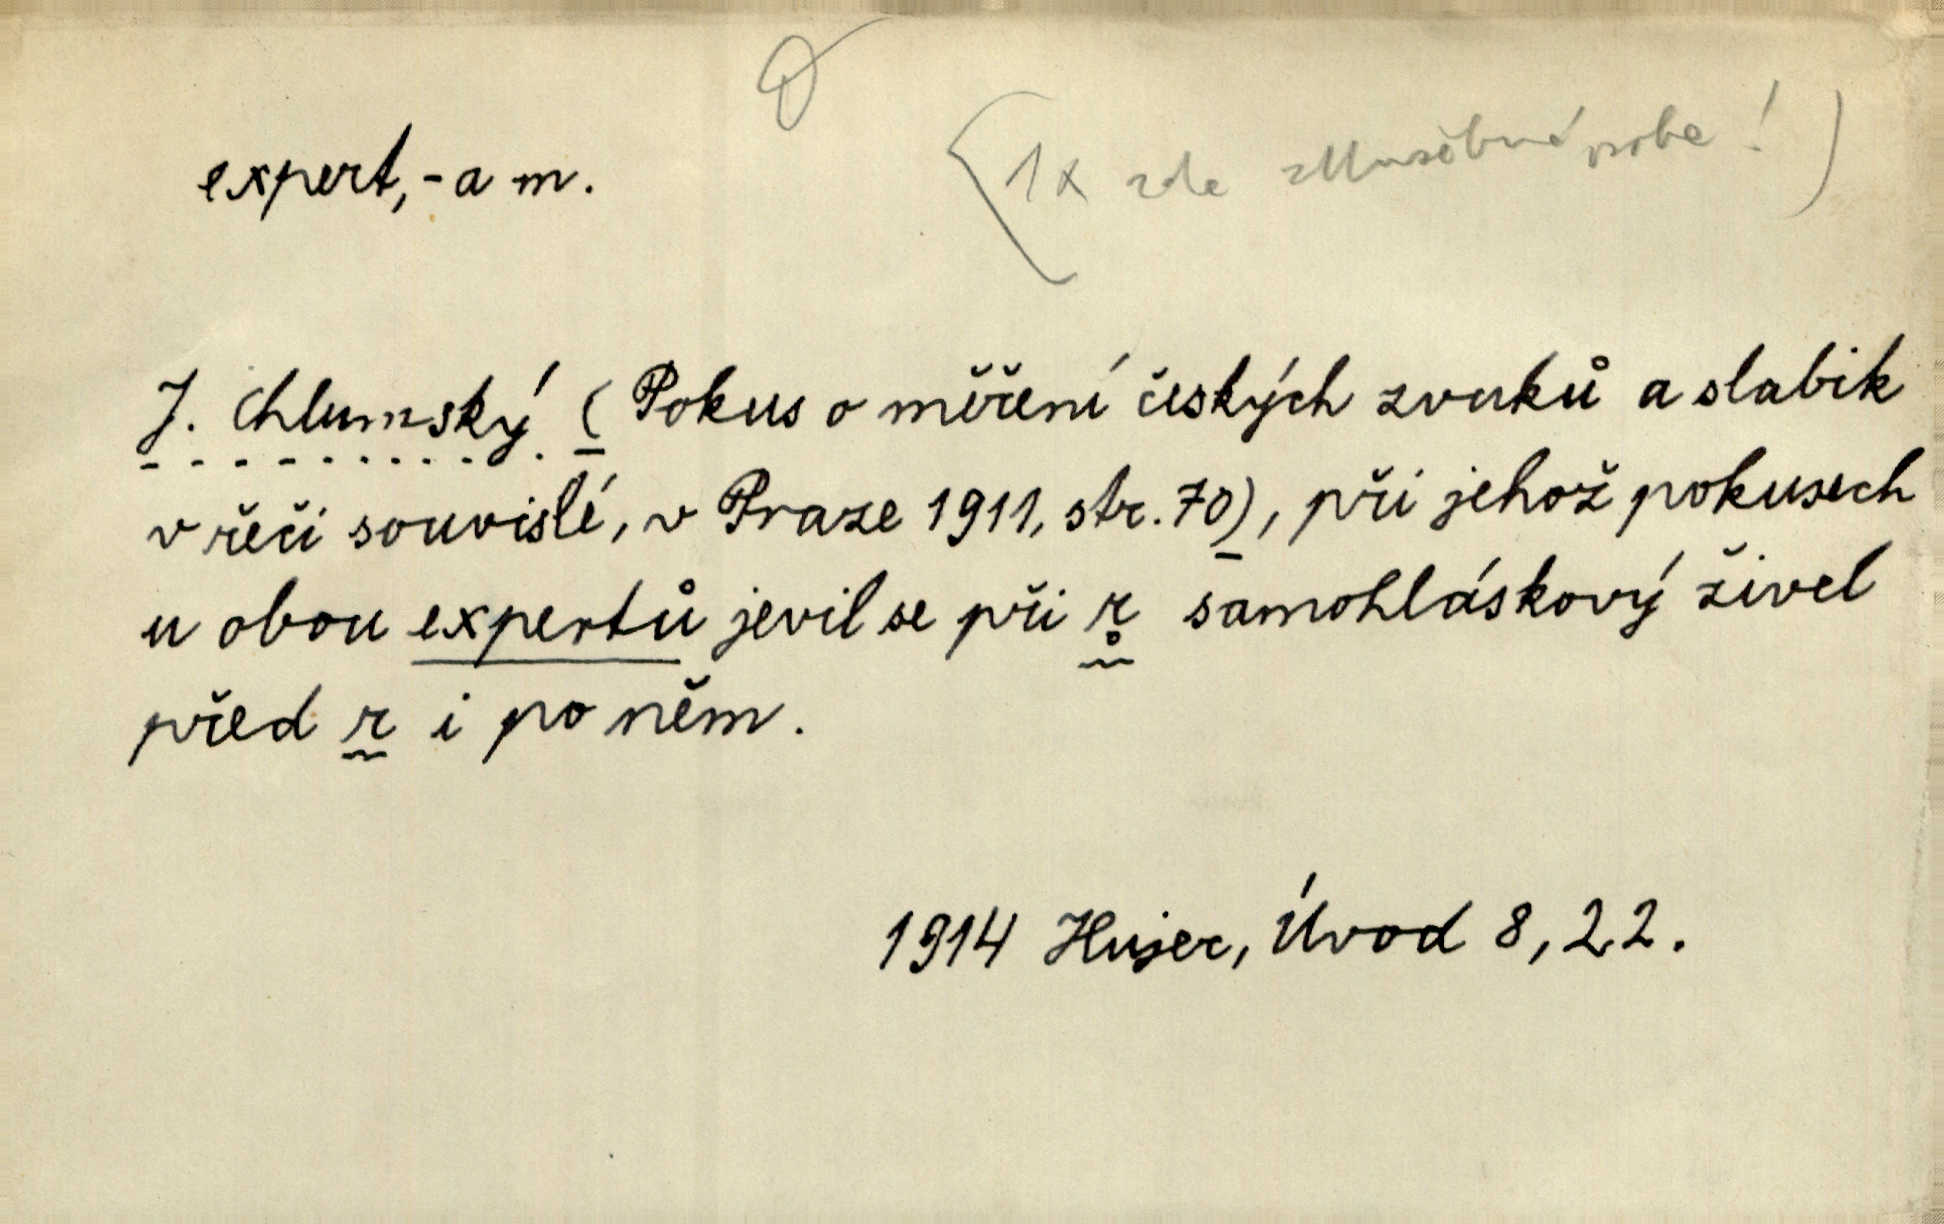 expert, -a m.
(1x zde
J. Chlumský (Pokus o měření českých zvuků a slabik
v řeči souvislé, v Praze 1911, str. 70), při jehož pokusech
u obou expertů jevil se při r̥ samohláskový živel
před r i po něm.
1914 Hujer, Úvod 8, 22.